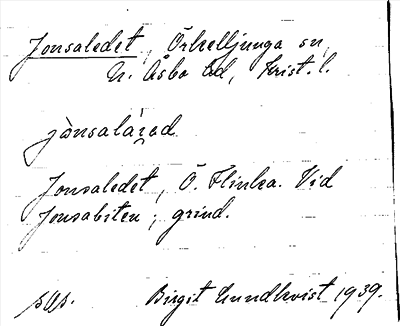 Jonsaledet, Örkelljunga sn,
N. Åsbo hd, Krist. l.
jònsalǻred
Jonsaledet, Ö. Flinka. Vid
Jonsabiten; grind.
Birgit Lundkvist 1939.